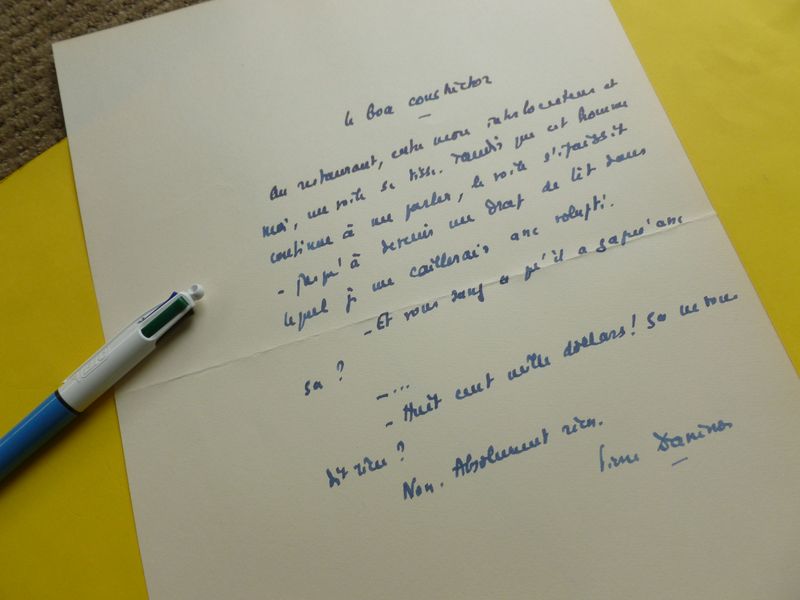 Le boa constrictor
Au restaurant, entre mon interlocuteur et
moi, un voile se tisse. Tandis que cet homme
continue à me parler, le voile s'épaissit
- jusqu'à devenir un drap de lit dans
lequel je me
- Et vous savez ce qu'il a gagné avec
ça ?
- ...
- Huit cent mille dollars ! Ça ne vous
dit rien ?
Non. Absolument rien.
Pierre Daninos